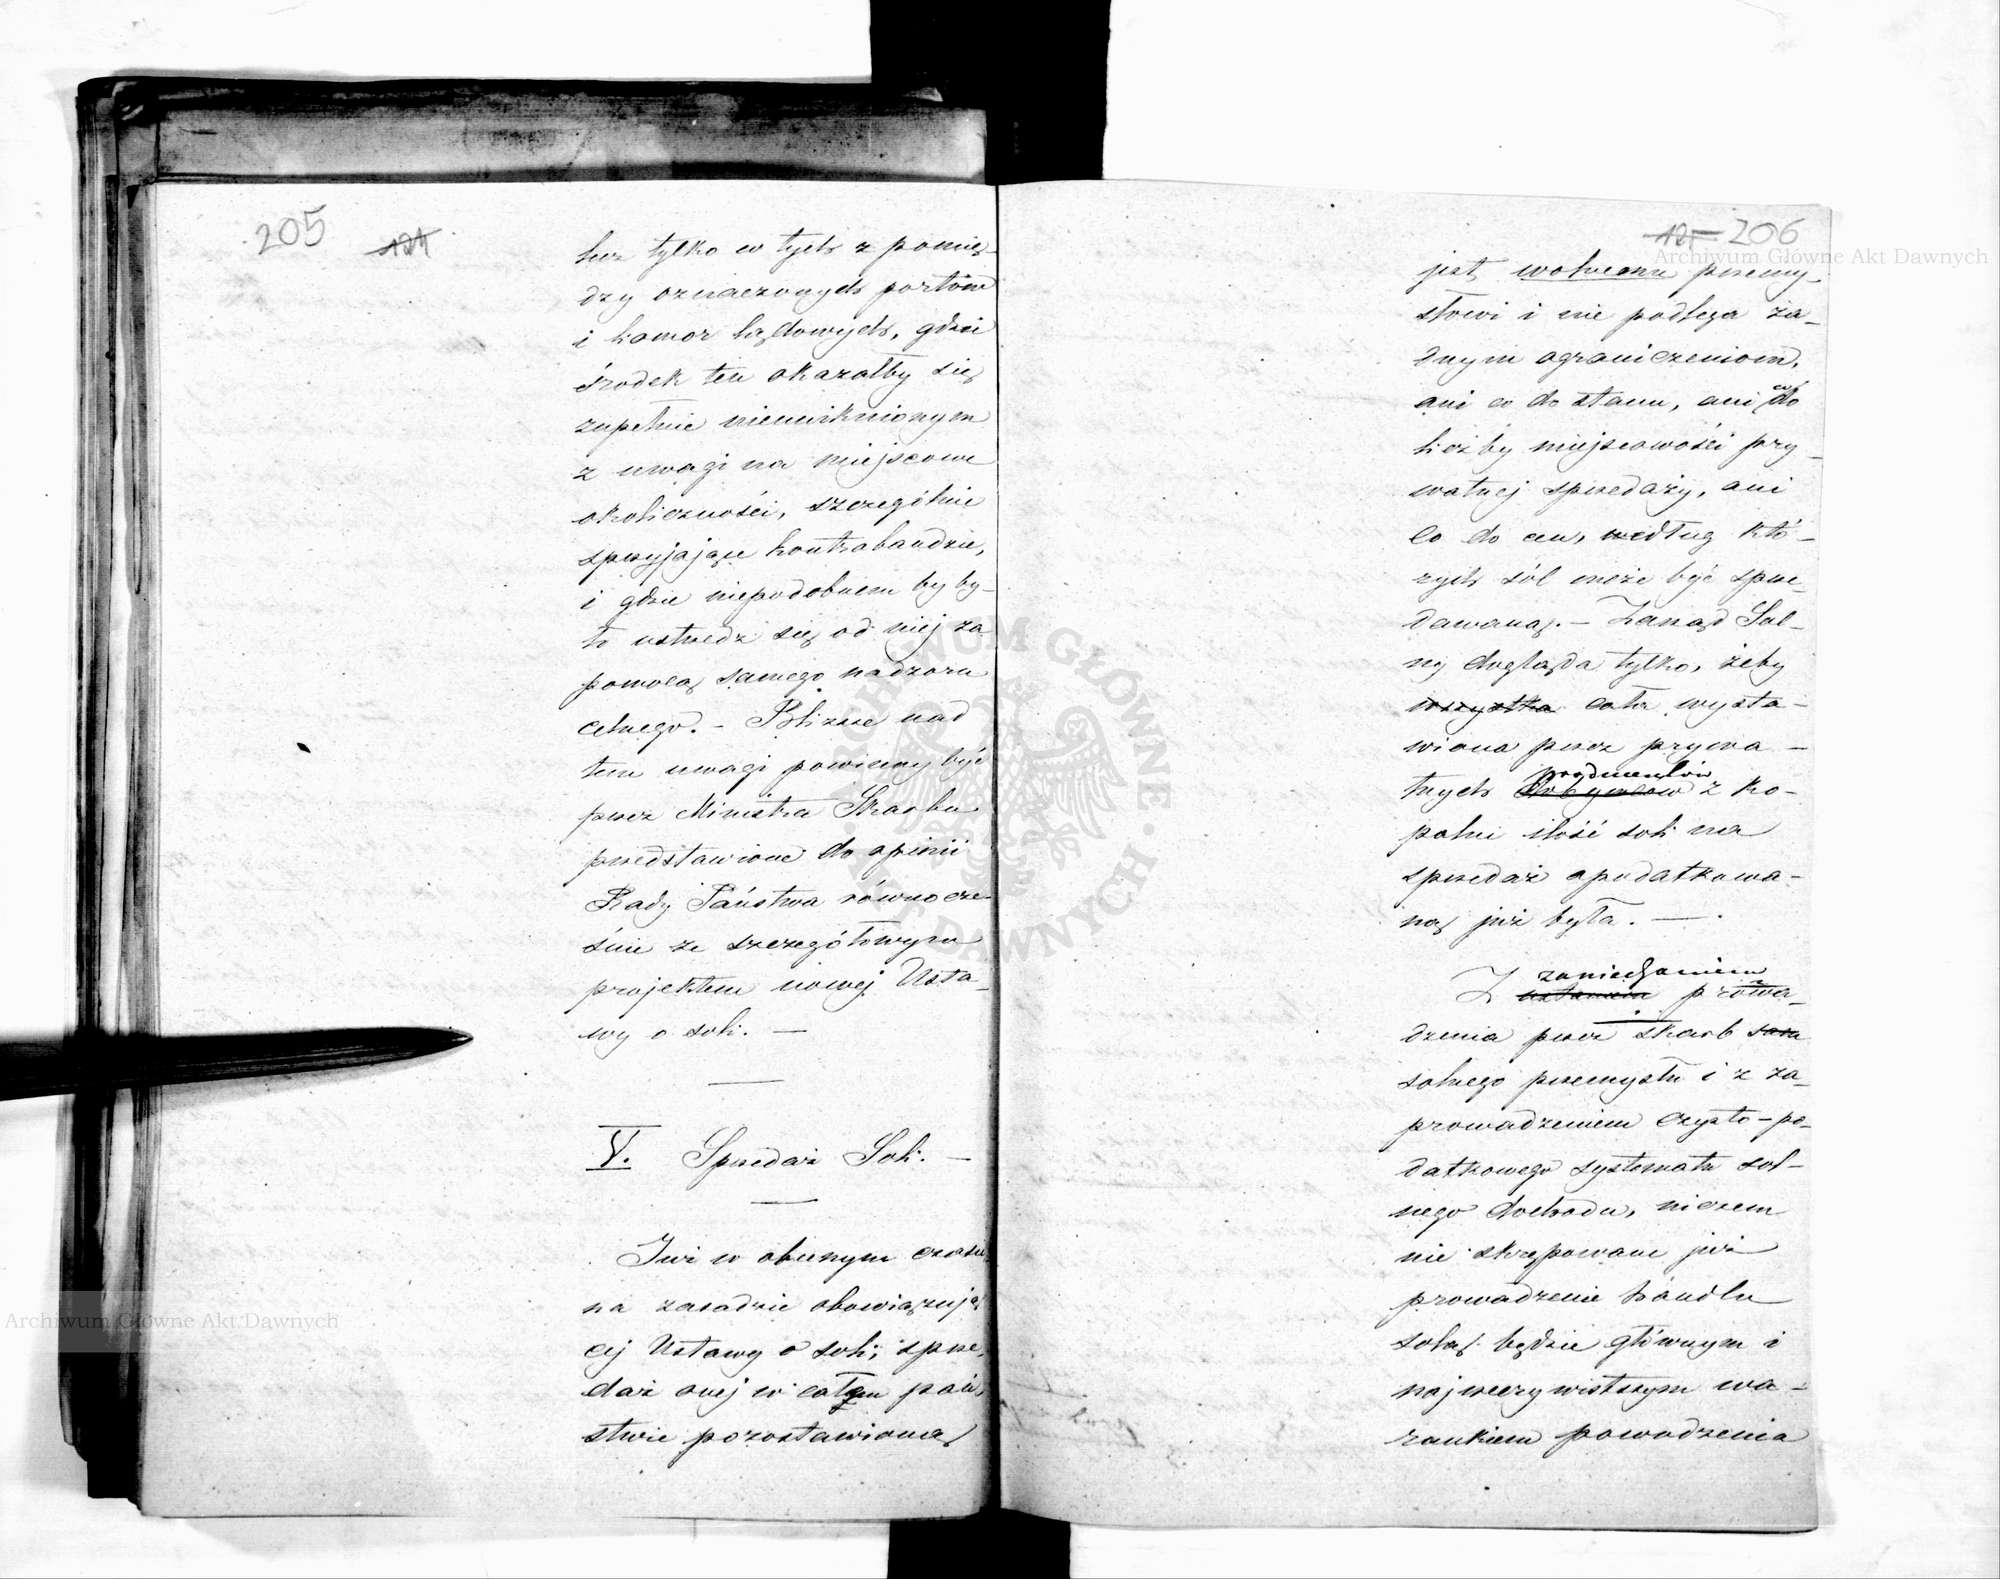 205
124
lecz tylko w tych z pomię-
dzy oznaczonych portów
i komor lądowych, gdzie
środek ten okazałby się
zupełnie nieuniknionym
z uwagi na miejscowe
okoliczności, szczególnie
sprzyjające kontrabandzie,
i gdzie niepodobnem by by-
ło ustrzedz się od niej za
pomocą samego nadzoru
celnego. - Bliższe nad
tem uwagi powinny być
przez Ministra Skarbu
przedstawione do opinii
Rady Państwa równocze-
śnie ze szczegółowym
projektem nowej Usta-
wy o soli. -
V. Sprzedaż Soli. -
Już w obecnym czasie,
na zasadzie obowiązują-
cej Ustawy o soli, sprze-
daż onej w całem pań-
stwie pozostawioną
125 206
jest wolnemu przemy-
słowi i nie podlega ża-
dnym ograniczeniom,
ani co do stanu, ani co do
liczby miejscowości pry-
watnej sprzedaży, ani
co do cen, według któ-
rych sól może być sprze-
dawaną. - Zarząd Sol-
ny dogląda tylko, żeby
wszystka cała wysta-
wiona przez prywa-
producentów
tnych dobywców z ko-
palni ilość soli na
sprzedaż opodatkowa-
ną już była. -
zaniechaniem
Z ustaniem prowa-
dzenia przez skarb sam
solnego przemysłu i z za-
prowadzeniem czysto-po-
datkowego systematu sol-
nego dochodu, niczem
nie skrępowane już
prowadzenie handlu
solą będzie głównym i
najrzeczywistszym wa-
runkiem powodzenia
Archiwum Główne Akt Dawnych
Archiwum Główne Akt Dawnych
ARCHIWUM GŁÓWNE AKT DAWNYCH